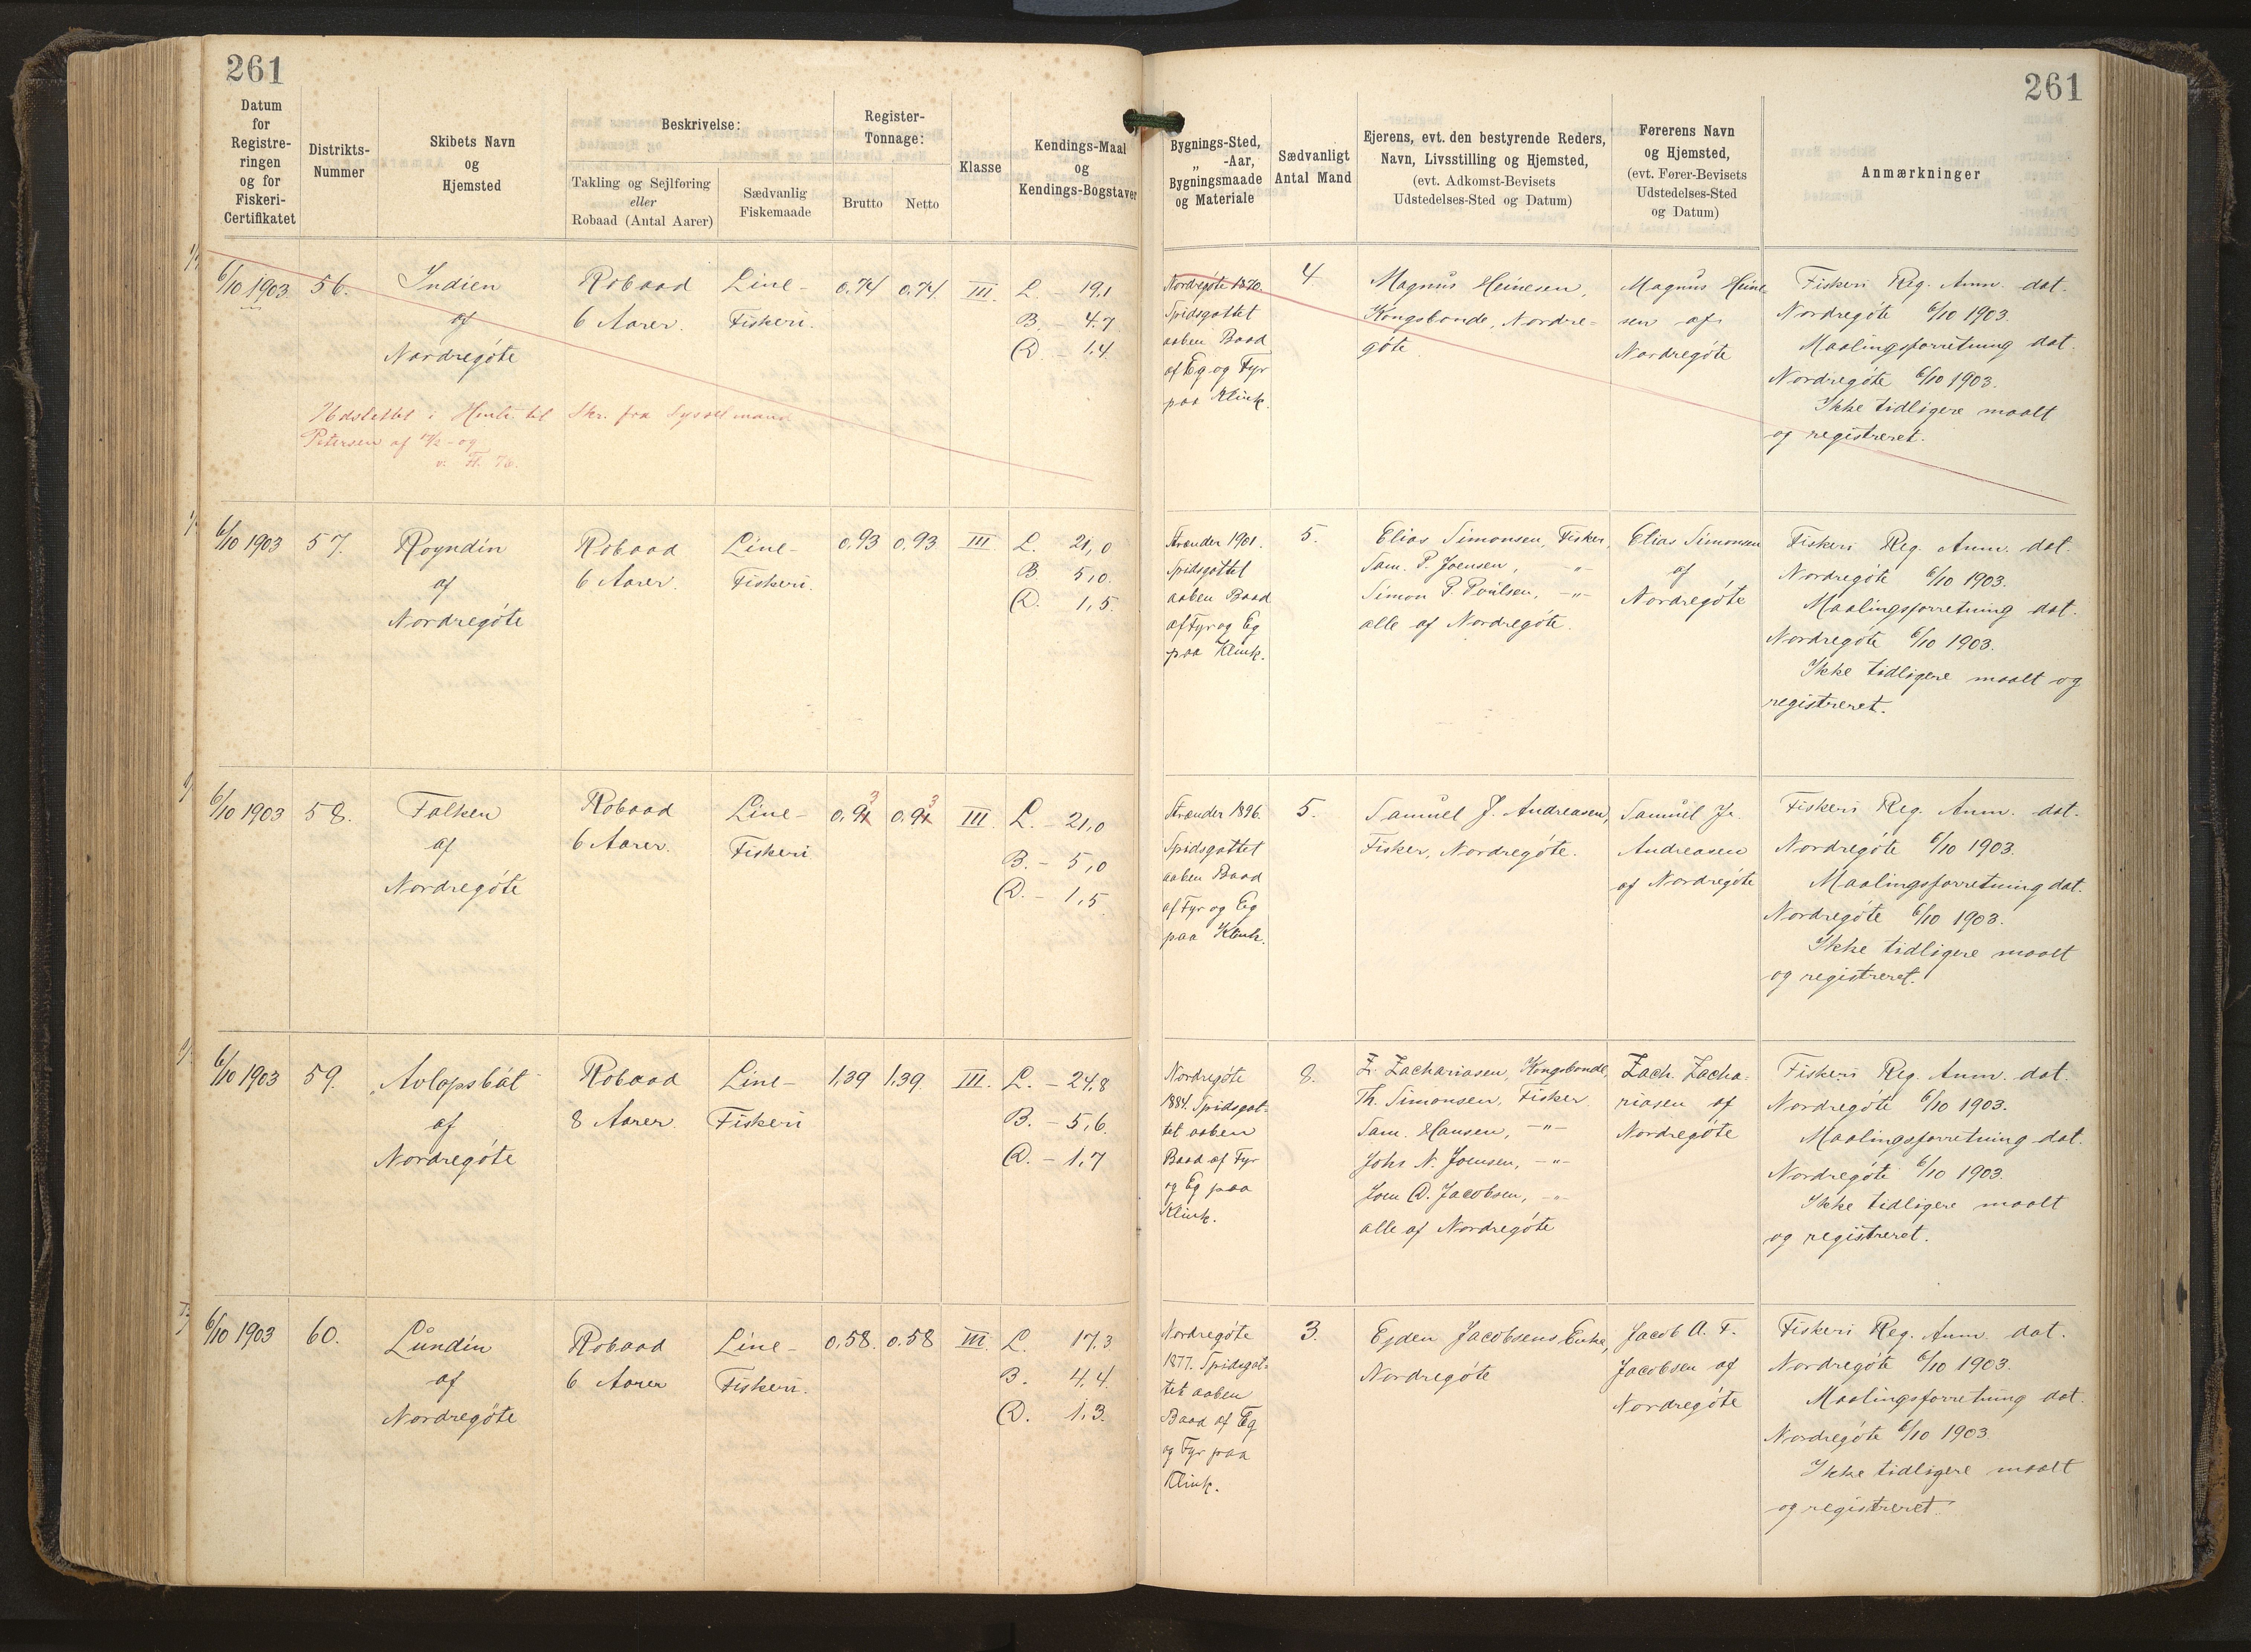 261
261
Datum
for
Registre-
ringen
og for
Fiskeri-
Certifikatet
Distrikts-
Nummer
Skibets Navn
og
Hjemsted
Beskrivelse:
Takling og Sejlføring
eller
Robaad (Antal Aarer)
Sædvanlig
Fiskemaade
Register-
Tonnage:
Brutto
Netto
Klasse
Kendings-Maal
og
Kendings-Bogstaver
Bygnings-Sted,
„ -Aar,
Bygningsmaade
og Materiale
Sædvanligt
Antal Mand
Ejerens, evt. den bestyrende Reders,
Navn, Livsstilling og Hjemsted,
(evt. Adkomst-Bevisets
Udstedelses-Sted og Datum)
Førerens Navn
og Hjemsted,
(evt. Fører-Bevisets
Udstedelses-Sted
og Datum)
Anmærkninger
6/10 1903
56.
Indien
af
Nordregöte
Robaad
6 Aarer.
Line-
Fiskeri.
0,74
0,74
III.
L. 19,1
B. - 4,7
D. - 1,4
Udslettet i Henh. til Skr. fra Sysselmand
Petersen af
Nordregöte 1870.
Spidsgattet
aaben Baad
af Eg og Fyr
paa Klink.
4.
Magnus Heinesen,
Kongsbonde, Nordre-
göte
Magnus Heine-
sen af
Nordregöte
Fiskeri Reg. Anm. dat.
Nordregöte 6/10 1903.
Maalingsforretning dat.
Nordregöte 6/10 1903.
Ikke tidligere maalt
og registreret.
6/10 1903
57.
Royndin
af
Nordregöte
Robaad
6 Aarer.
Line-
Fiskeri.
0,93
0,93
III
L. 21,0
B. 5,0.
D. 1,5.
Strænder 1901.
Spidsgattet
aaben Baad
af Fyr og Eg
paa Klink.
5.
Elias Simonsen, Fisker,
Sam. P. Joensen, -"-
Simon P. Poulsen, -"-
alle af Nordregöte.
Elias Simonsen
af
Nordregöte
Fiskeri Reg. Anm. dat.
Nordregöte 6/10 1903.
Maalingsforretning dat.
Nordregöte 6/10 1903.
Ikke tidligere maalt og
registreret.
6/10 1903
58.
Falken
af
Nordregöte
Robaad
6 Aarer.
Line-
Fiskeri
0,93
0,93
III.
L. - 21,0
B. - 5,0
D. - 1,5
Strænder 1896.
Spidsgattet
aaben Baad
af Fyr og Eg
paa Klink.
5.
Samuel J. Andreasen,
Fisker, Nordregöte.
Samuel J.
Andreasen
af Nordregöte
Fiskeri Reg. Anm. dat.
Nordregöte 6/10 1903.
Maalingsforretning dat.
Nordregöte 6/10 1903.
Ikke tidligere maalt
og registreret.
6/10 1903
59.
Avlopsbát
af
Nordregöte
Robaad
8 Aarer.
Line-
Fiskeri
1,39
1,39.
III.
L. - 24,8
B. - 5,6.
D. - 1,7
Nordregöte
1884. Spidsgat-
tet aaben
Baad af Fyr
og Eg paa
Klink.
8.
Z. Zachariasen, Kongsbonde,
Th. Simonsen, Fisker.
Sam. Hansen, -"-
Johs N. Joensen, -"-
Joen D. Jacobsen, -"-
alle af Nordregöte
Zach. Zacha-
riasen af
Nordregöte
Fiskeri Reg. Anm. dat.
Nordregöte 6/10 1903.
Maalingsforretning dat.
Nordregöte 6/10 1903.
Ikke tidligere maalt
og registreret.
6/10 1903
60.
Lundin
af
Nordregöte
Robaad
6 Aarer
Line-
Fiskeri.
0,58.
0,58
III.
L. 17,3
B. 4,4.
D. 1,3.
Nordregöte
1877. Spidsgat-
tet aaben
Baad af Eg
og Fyr paa
Klink.
3.
Ejden Jacobsens Enke,
Nordregöte
Jacob A. F.
Jacobsen af
Nordregöte
Fiskeri Reg. Anm. dat.
Nordregöte 6/10 1903.
Maalingsforretning dat.
Nordregöte 6/10 1903.
Ikke tidligere maalt
og registreret.